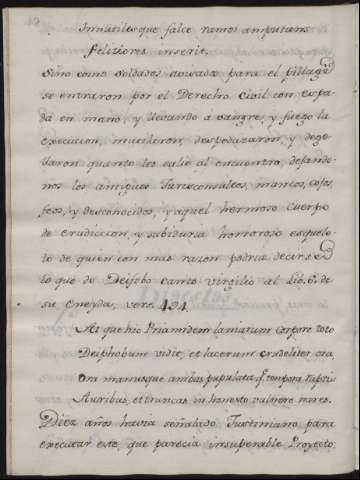 Inmutiles que falce ramos amputans
feliziores inserit.
Sino como soldados acusados para el pillage
se entraron por el Derecho Civil con espa-
da en mano, y llevando à sangre, y fuego la
execucion, mutilaron, despedazaron, y dego-
llaron quanto les salio al encuentro, dejando-
nos los antiguos Jurisconsultos, mancos, cojos,
feos, y desconocidos, y aquel hermoso cuerpo
de erudiccion, y sabiduria horroroso esquele-
to de quien con mas razon podria decirse
lo que de Deifobo canto virgilio al Lib. 6. de
su Eneyda, vers. 494.
At que hic Priamidem laniatum corpore toto
Deiphobum vidit, et lacerum crudeliter ora,
Ora manusque ambas, populata q.e tempora raptis
Auribus, et truncas in honesto vulnere nares.
Diez años havia señalado Justiniano para
executar este, que parecia insuperable Proyecto